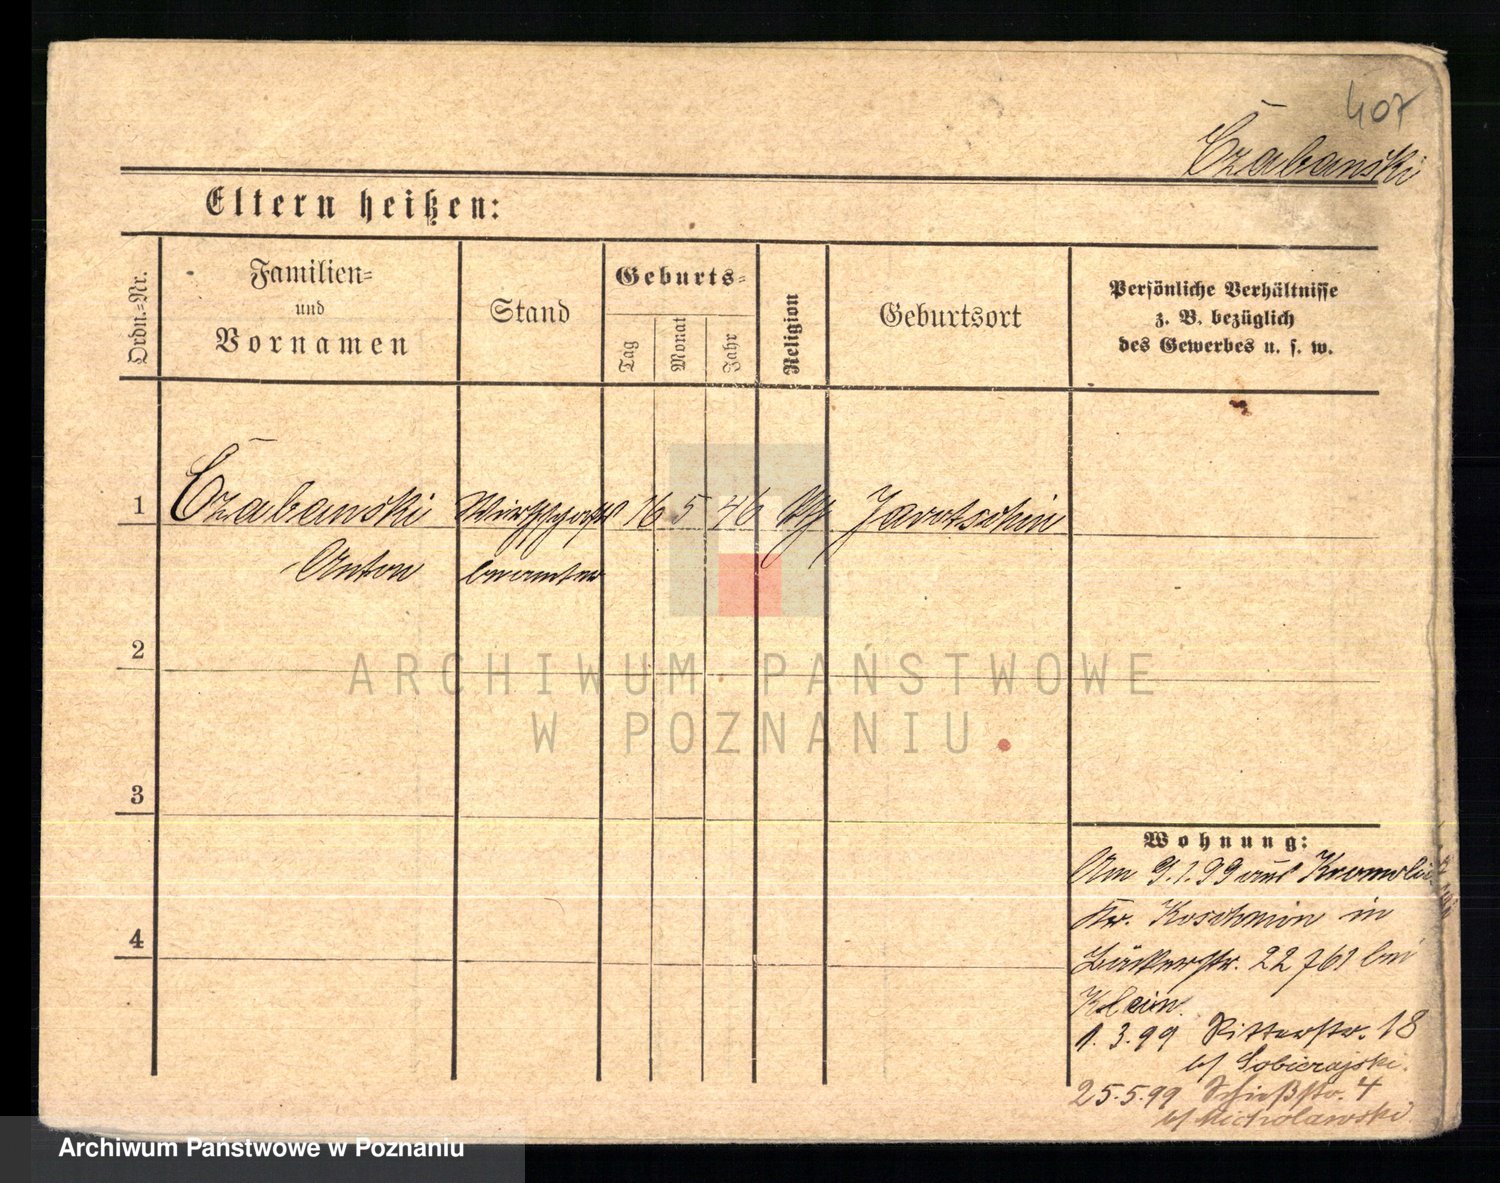 407
Czabanski
Eltern heißen:
Ordn.-Nr.
Familien-
und
Vornamen
Stand
Geburts-
Tag
Monat
Jahr
Religion
Geburtsort
Persönliche Verhältnisse
z. B. bezüglich
des Gewerbes u. s. w.
1 Czabanski Wirthschafts 16 5 46 Jarotschin
Anton beamter
2
3
4
Wohnung:
Am 9.1.99 aus Kromolic
Kr. Koschmin in
Bäckerstr. 22 bei
Klein.
1.3.99 Ritterstr. 18
b/ Sobierajski.
25.5.99 Schießstr. 4
b/ Nicholawski
ARCHIWUM PAŃSTWOWE
W POZNANIU
Archiwum Państwowe w Poznaniu